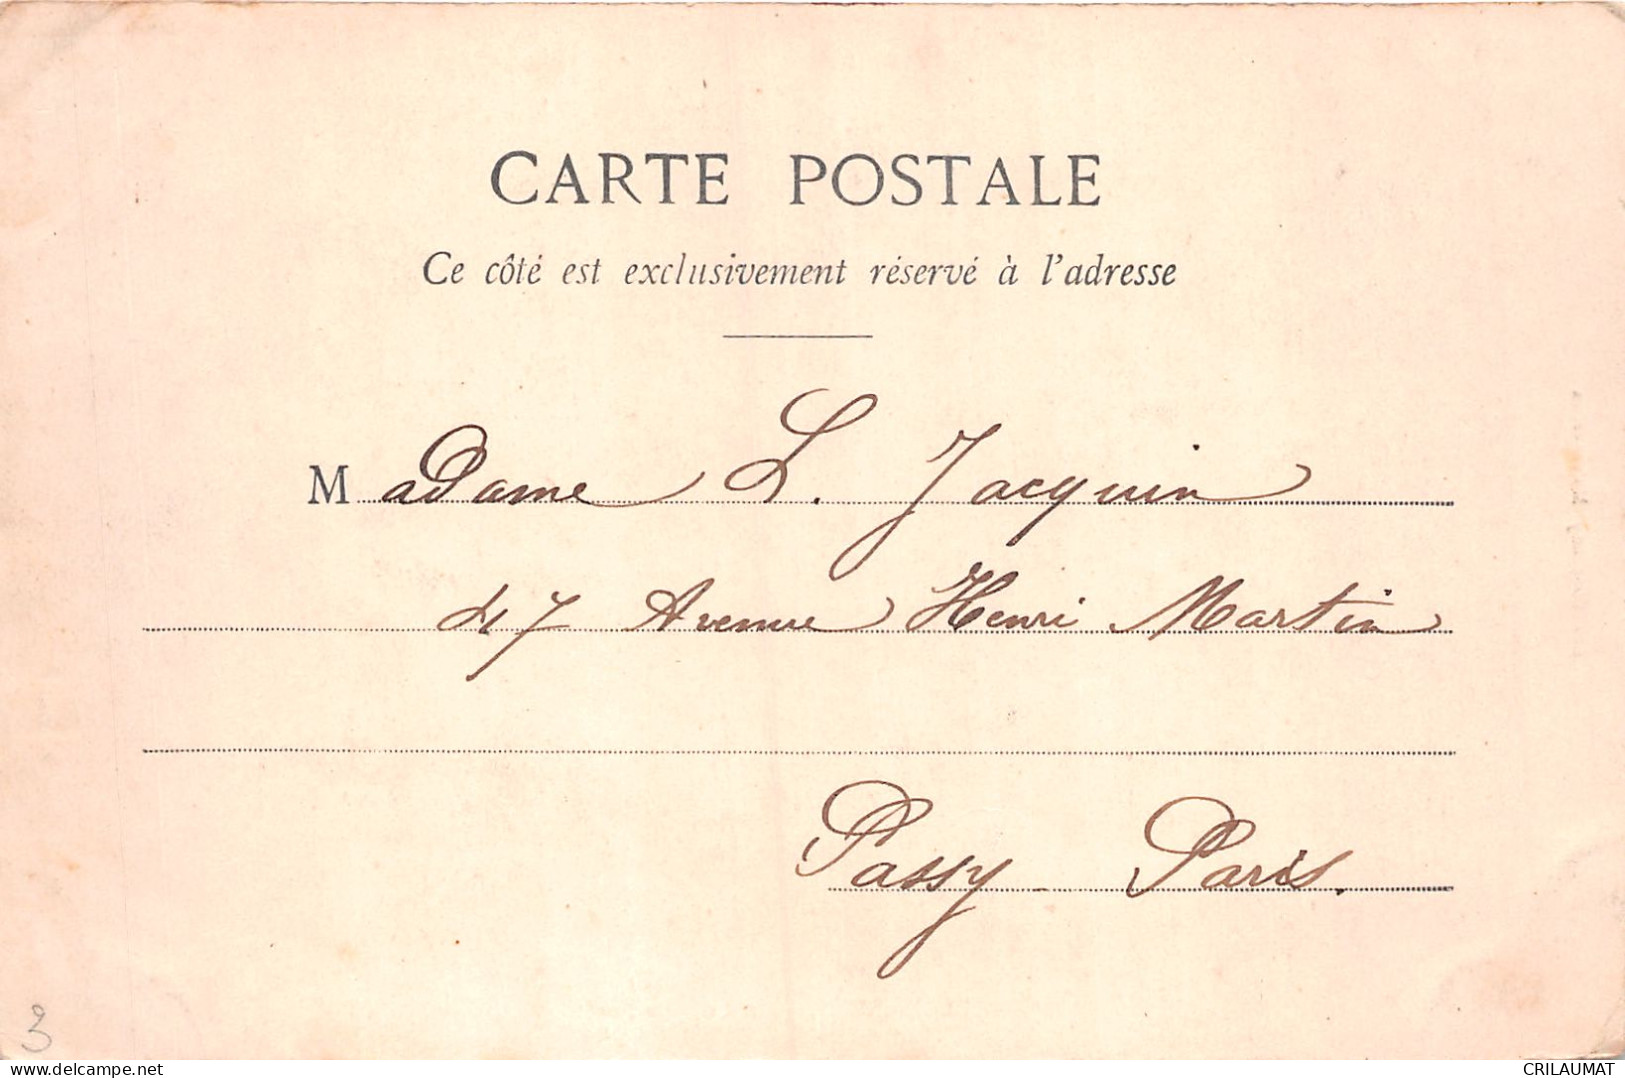 CARTE POSTALE
Ce côté est exclusivement réservé à l'adresse
Madame L. Jacquin
47 Avenue Henri Martin
Passy - Paris.
3
delcampe.net
CRILAUMAT